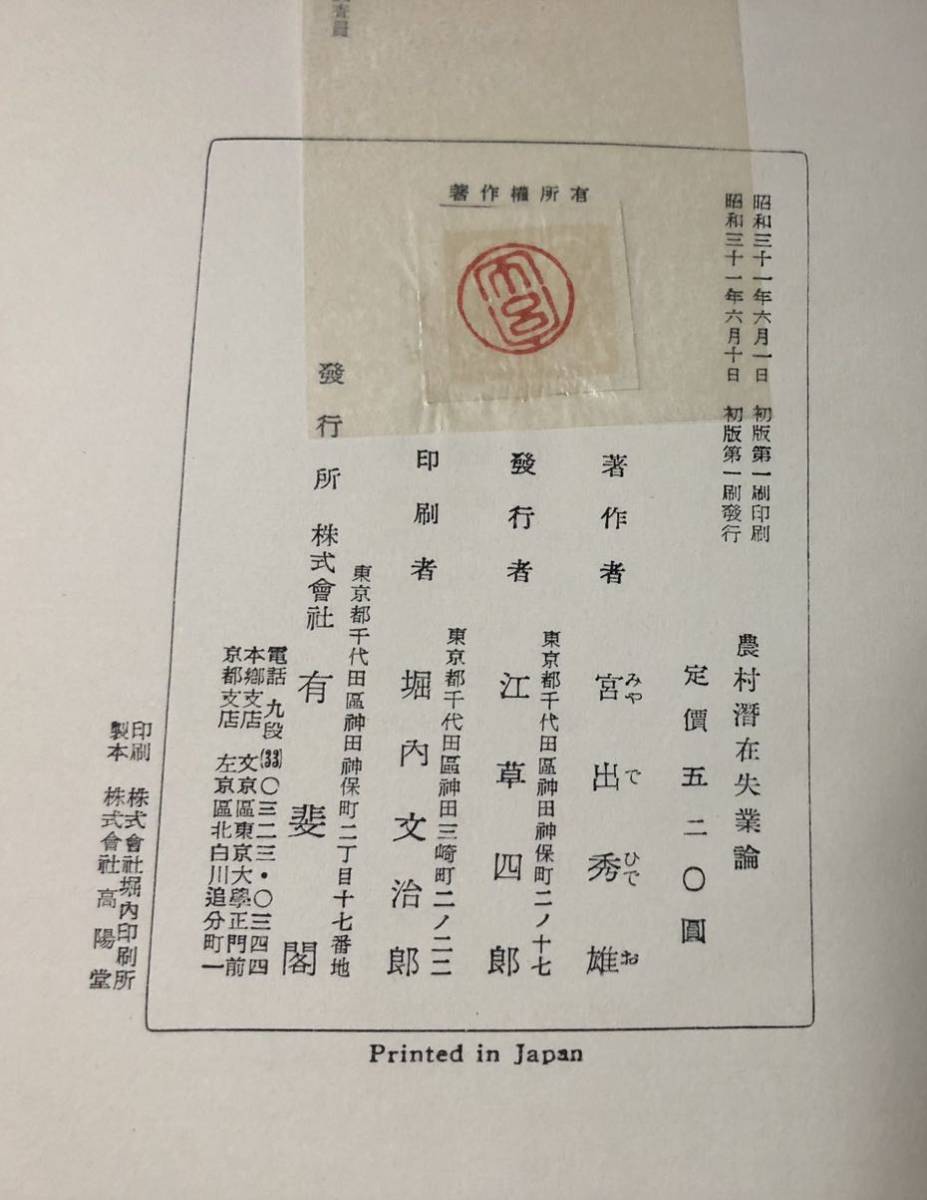 昭和三十一年六月一日 初版第一刷印刷
昭和三十一年六月十日 初版第一刷發行
農村潛在失業論
定價五二〇圓
著作權所有
著作者 宮出秀雄
みやでひでお
東京都千代田區神田神保町二ノ十七
發行者 江草四郎
東京都千代田區神田三崎町二ノ二二
印刷者 堀內文治郎
東京都千代田區神田神保町二丁目十七番地
發行所 株式會社 有斐閣
電話 九段(33)〇三二三・〇三四四
本鄉支店 文京區東京大學正門前
京都支店 左京區北白川追分町一
印刷 株式會社堀內印刷所
製本 株式會社高陽堂
Printed in Japan